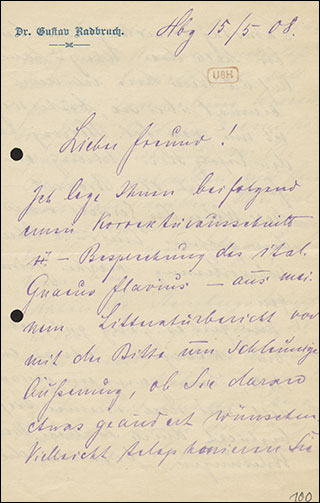 Dr. Gustav Radbruch.
Hbg 15/5 08.
UBH
Lieber Freund!
Ich lege Ihnen beifolgend
einen Korrekturausschnitt
– Besprechung des ital.
Gnaeus Flavius – aus mei-
nem Litteraturbericht vor
mit der Bitte um schleunige
Äußerung, ob Sie daran
etwas geändert wünschen
Vielleicht telephonieren Sie
100